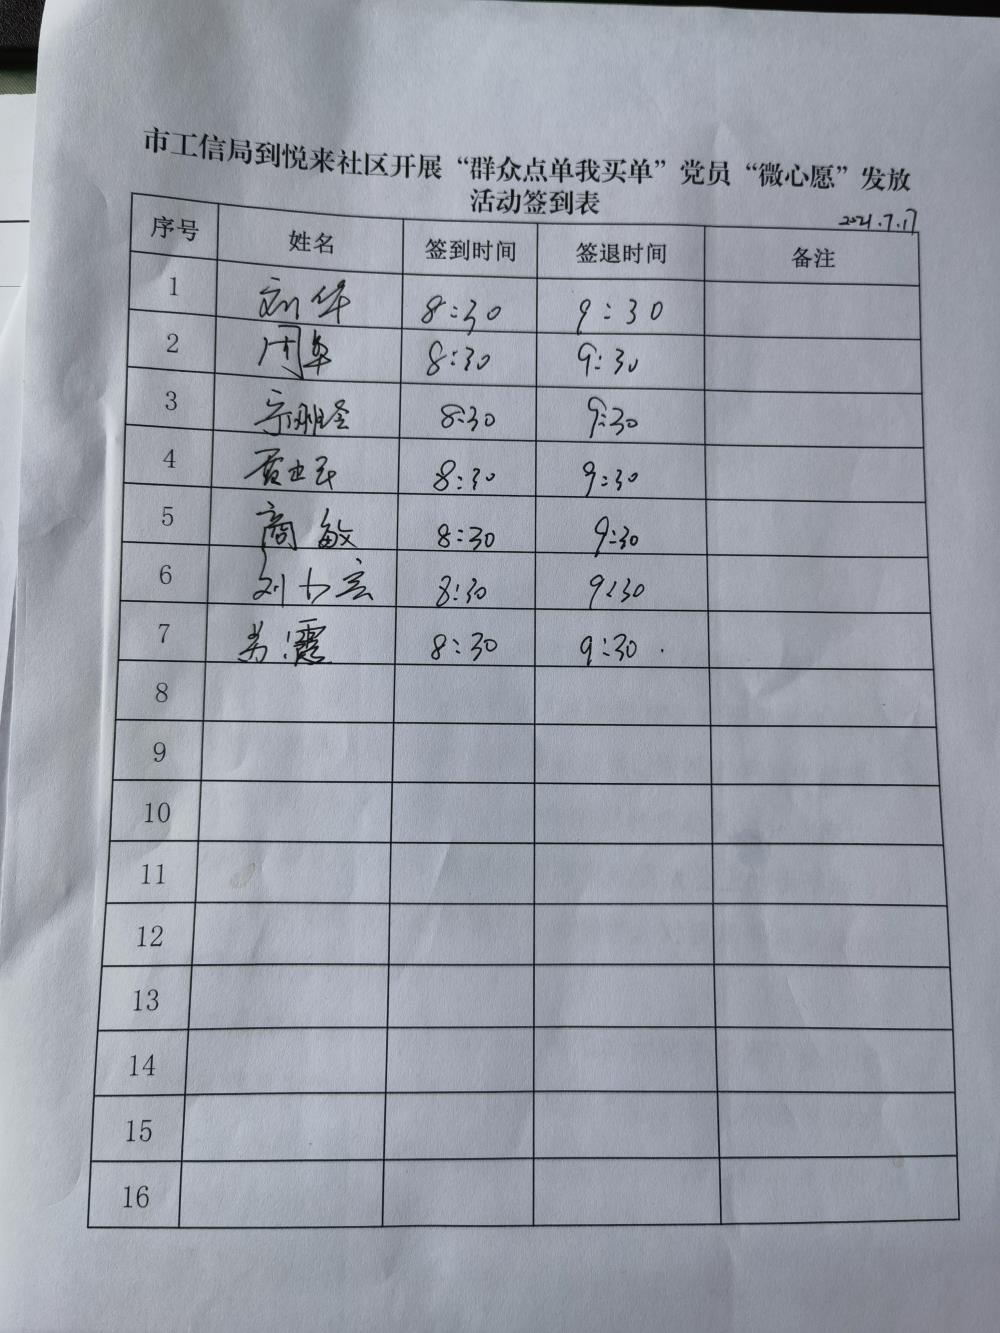 市工信局到悦来社区开展“群众点单我买单”党员“微心愿”发放
活动签到表
2021.7.17
序号 姓名 签到时间 签退时间 备注
1 刘华 8:30 9:30
2 周率 8:30 9:30
3 8:30 9:30
4 8:30 9:30
5 商敏 8:30 9:30
6 刘 8:30 9:30
7 8:30 9:30
8
9
10
11
12
13
14
15
16